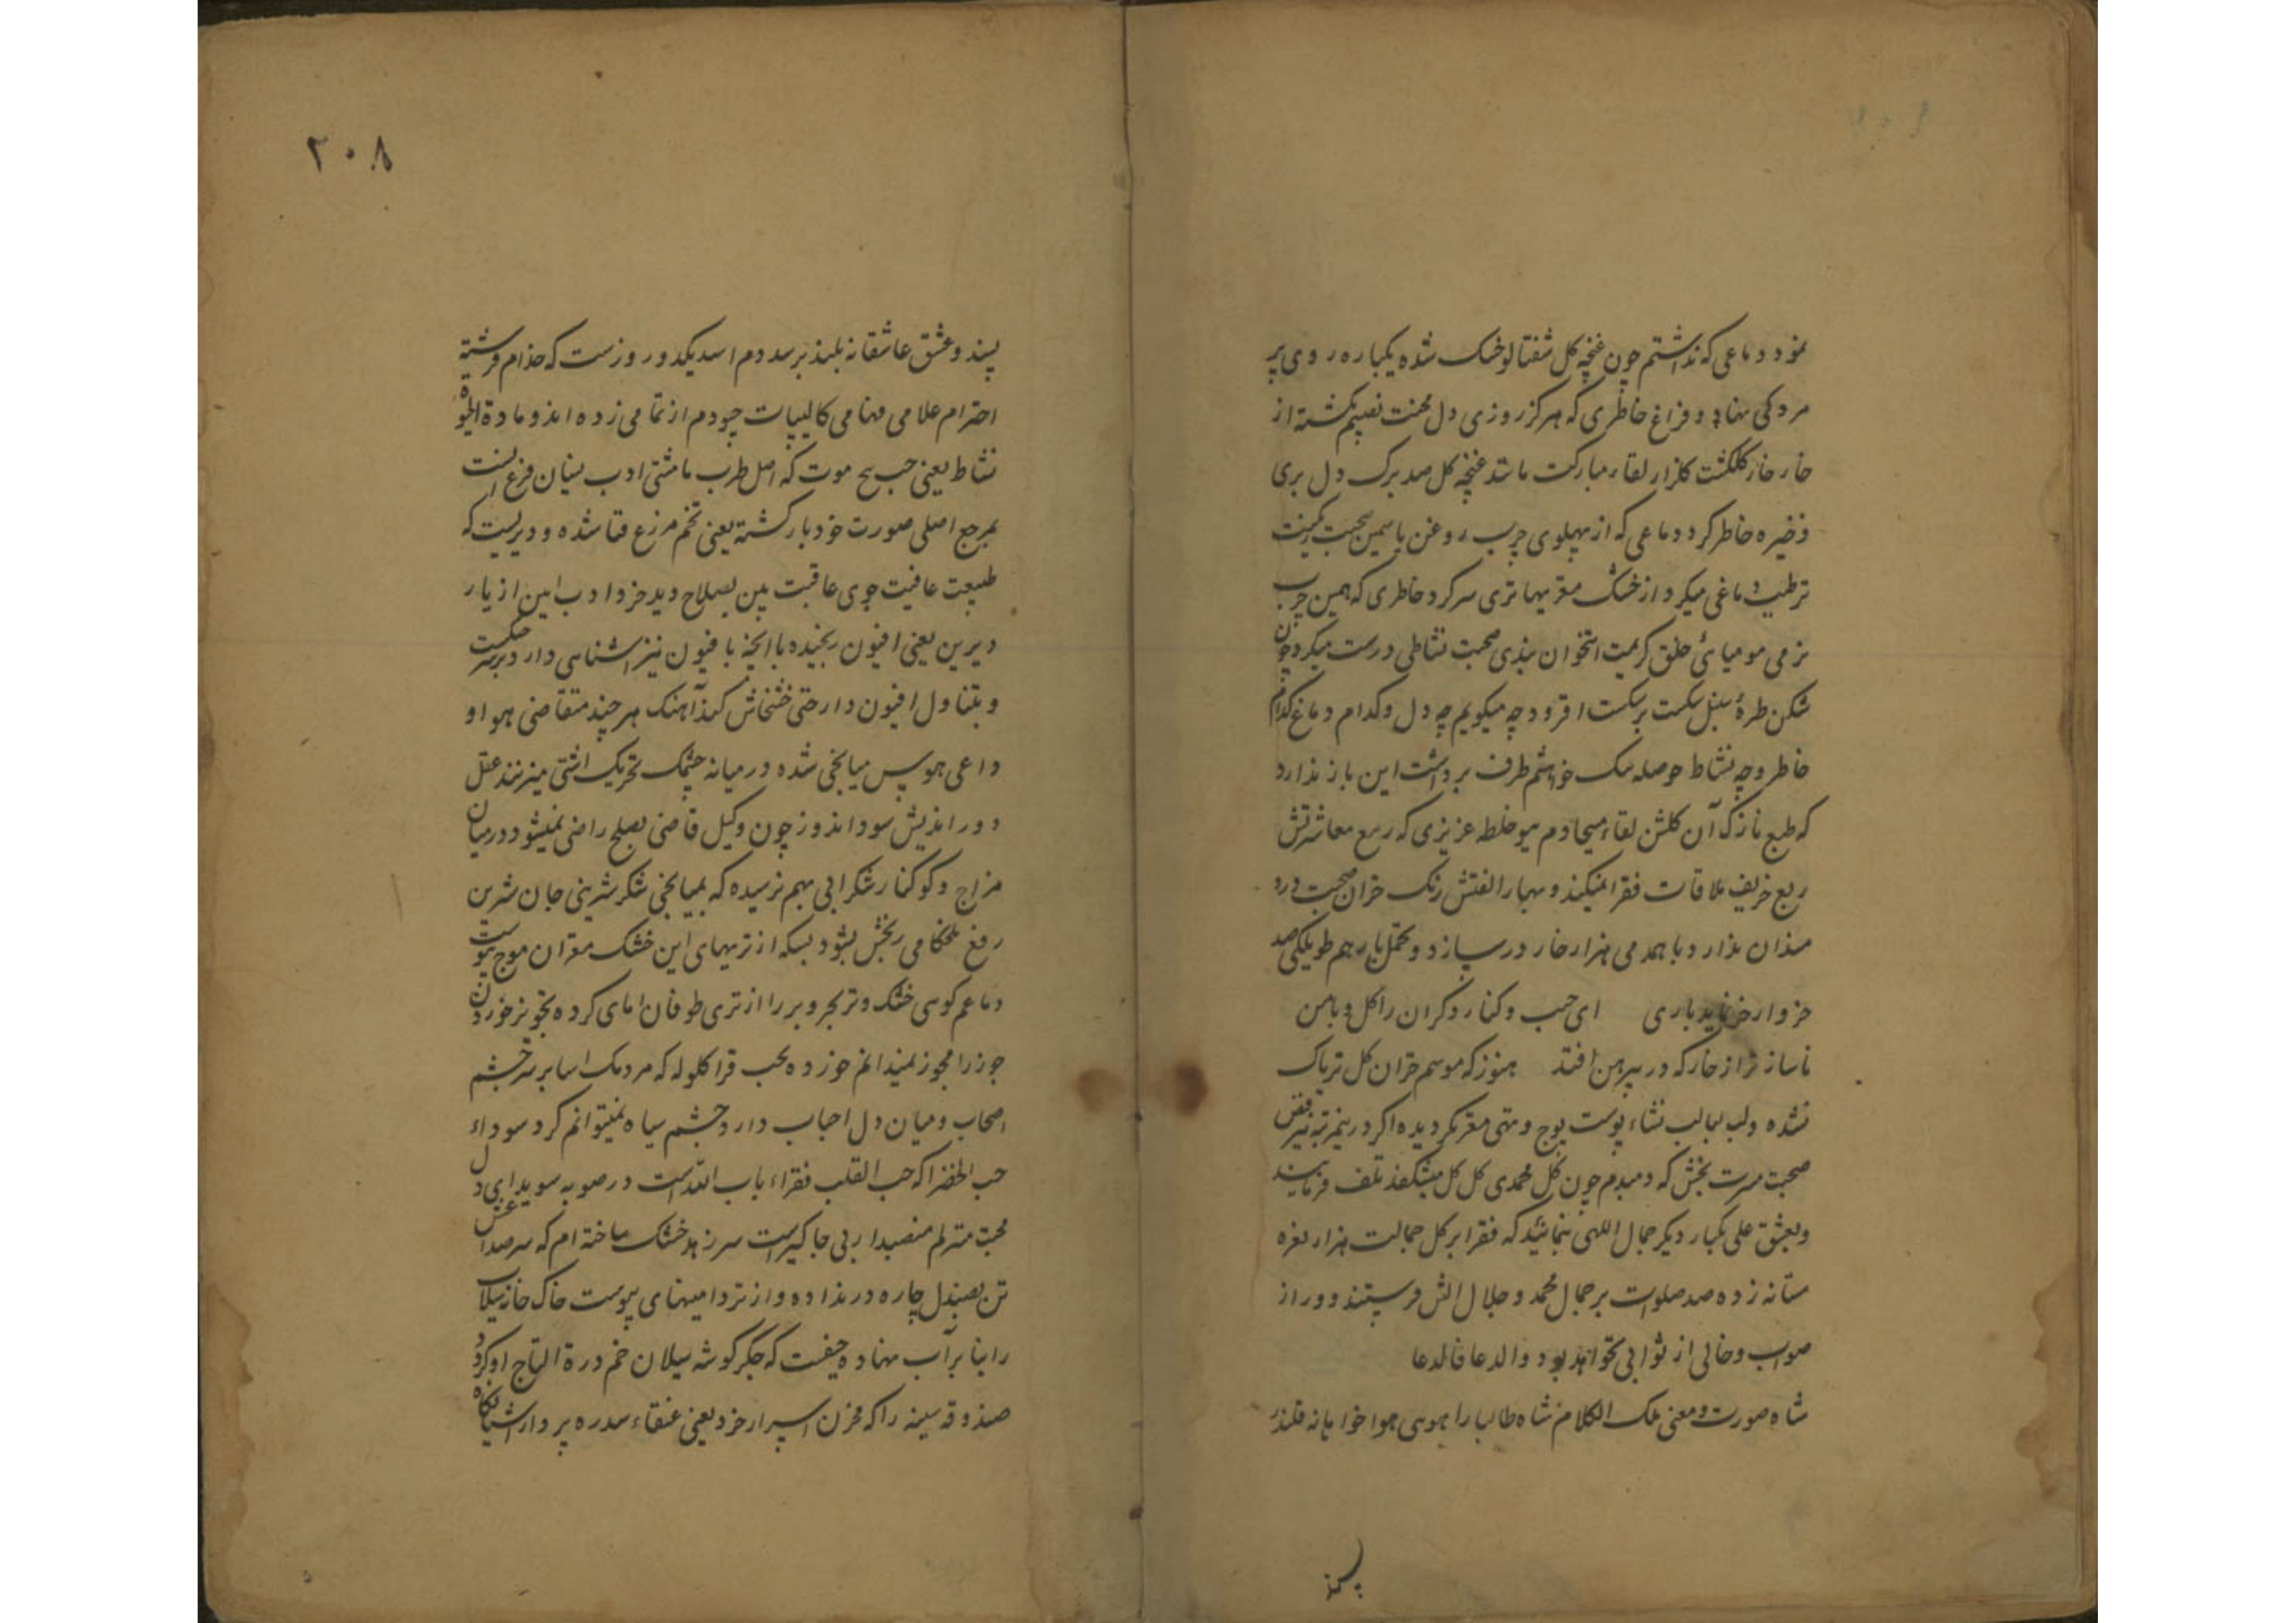 نمود دماغی که نداشتم چون غنچه کل شفتالو خشک شده یکباره روی پر
مردکی نهاد و فراغ خاطری که هرکز روزی دل محنت نصیبم نکشته از
خار خار کلکشت کلزار لقاء مبارکت مانند غنچه کل صد برک دل بری
ذخیره خاطر کرد دماغی که از پهلوی چرب روغن یاسمین صحبت
ترطیب دماغی میکرد از خشک مغزیها تری سر کرد خاطری که همین چرب
نرمی مومیائ خلق کریمت استخوان بندی صحبت نشاطی درست میکرد چون
شکن طرهٔ سنبل شکست بر شکست افزود چه میکویم چه دل و کدام دماغ کدام
خاطر و چه نشاط حوصله خواشتم طرف برداشت این بار ندارد
که طبع نازک آن کلشن لقاء مسیحا دم عزیزی که ربیع معاشرتش
ربع خریف ملاقات فقرا نمیکند و بهار الفتش رنک خزان صحبت درد
مندان ندارد با همدمی هزار خار در سازد و تحمل بار هم طویلکی صد
خروار خر نماید باری ای حب و کنار دکران را کل و با من
ناساز تر از خار که در پیرهن افتد هنوز که موسم خزان کل تریاک
نشده و لب لبالب نشاء پوست پوچ و تهی مغز نکردیده اکر درینمرتبه نیز
صحبت مسرت بخش که دمبدم چون کل محمدی کل کل میشکفد تلف فرمایند
و بعشق علی یکبار دیکر جمال اللهی بنمائید که فقرا بر کل جمالت هزار نعره
مستانه زده صد صلوات بر جمال محمد و جلال الش فرستند و دور از
صواب و خالی از ثوابی نخواهد بود والدعا فالدعا
شاه صورت و معنی ملک الکلام شاه طالبا را هوسی هوا خواهانه قلندر
پسند
۲۰۸
پسند و عشق عاشقانه بلند برسد دم اسد یکدو روزست که خدام فرشته
احترام علامی فهامی کالیپات چو دم از تمامی زده اند و مادة الحیوة
نشاط یعنی حب موت که اصل طرب ما مشتی ادب بنیان فرع انست
بمرجع اصلی صورت خود بازکشته یعنی تخم مزرع فنا شده و دیریست که
طبیعت عافیت جوی عاقبت بین بصلاح دید خرد ادب این از یار
دیرین یعنی افیون رنجیده با انجه با فیون نیز اشنایی دارد بر سر
و بتناول افیون دار حتی خشخاش کند آهنک هر چند متقاضی هوا و
داعی هوس میانجی شده در میانه چشمک تحریک اشتی میزنند عقل
دور اندیش سود اندوز چون وکیل قاضی بصلح راضی نمیشود در میان
مزاج و کوکنار شکرابی بهم نرسیده که بمیانجی شکر شیرینی جان شیرین
رفع تلخکامی رنجش بشود بسکه از تریهای این خشک مغزان موج
دماغم کوسی خشک و تر بحر و بر را از تری طوفان کرده تجویز خوردن
جوز را مجوز نمیدانم خورده بحب قرا کلوله که مردمک اسا بر سر چشم
اصحاب و میان دل احباب دارد چشم سیاه نمیتوانم کرد سوداء
حب الخضرا که حب القلب فقراء باب الله است در صوبه سویدایی دل
محبت منزلم منصبدار بی جاکیر است سر زهد خشک ساخته ام که سر صداعش
تن بصندل چاره در نداده و از تر دامنیهای پوست خاک خانه سیلاب
را بنا بر آب نهاده حیفست که جکر کوشه سیلان خم درة التاج او کردد
صندوقه سینه را که مخزن اسرار خرد یعنی عنقاء سدره پرواز اشیانکاه